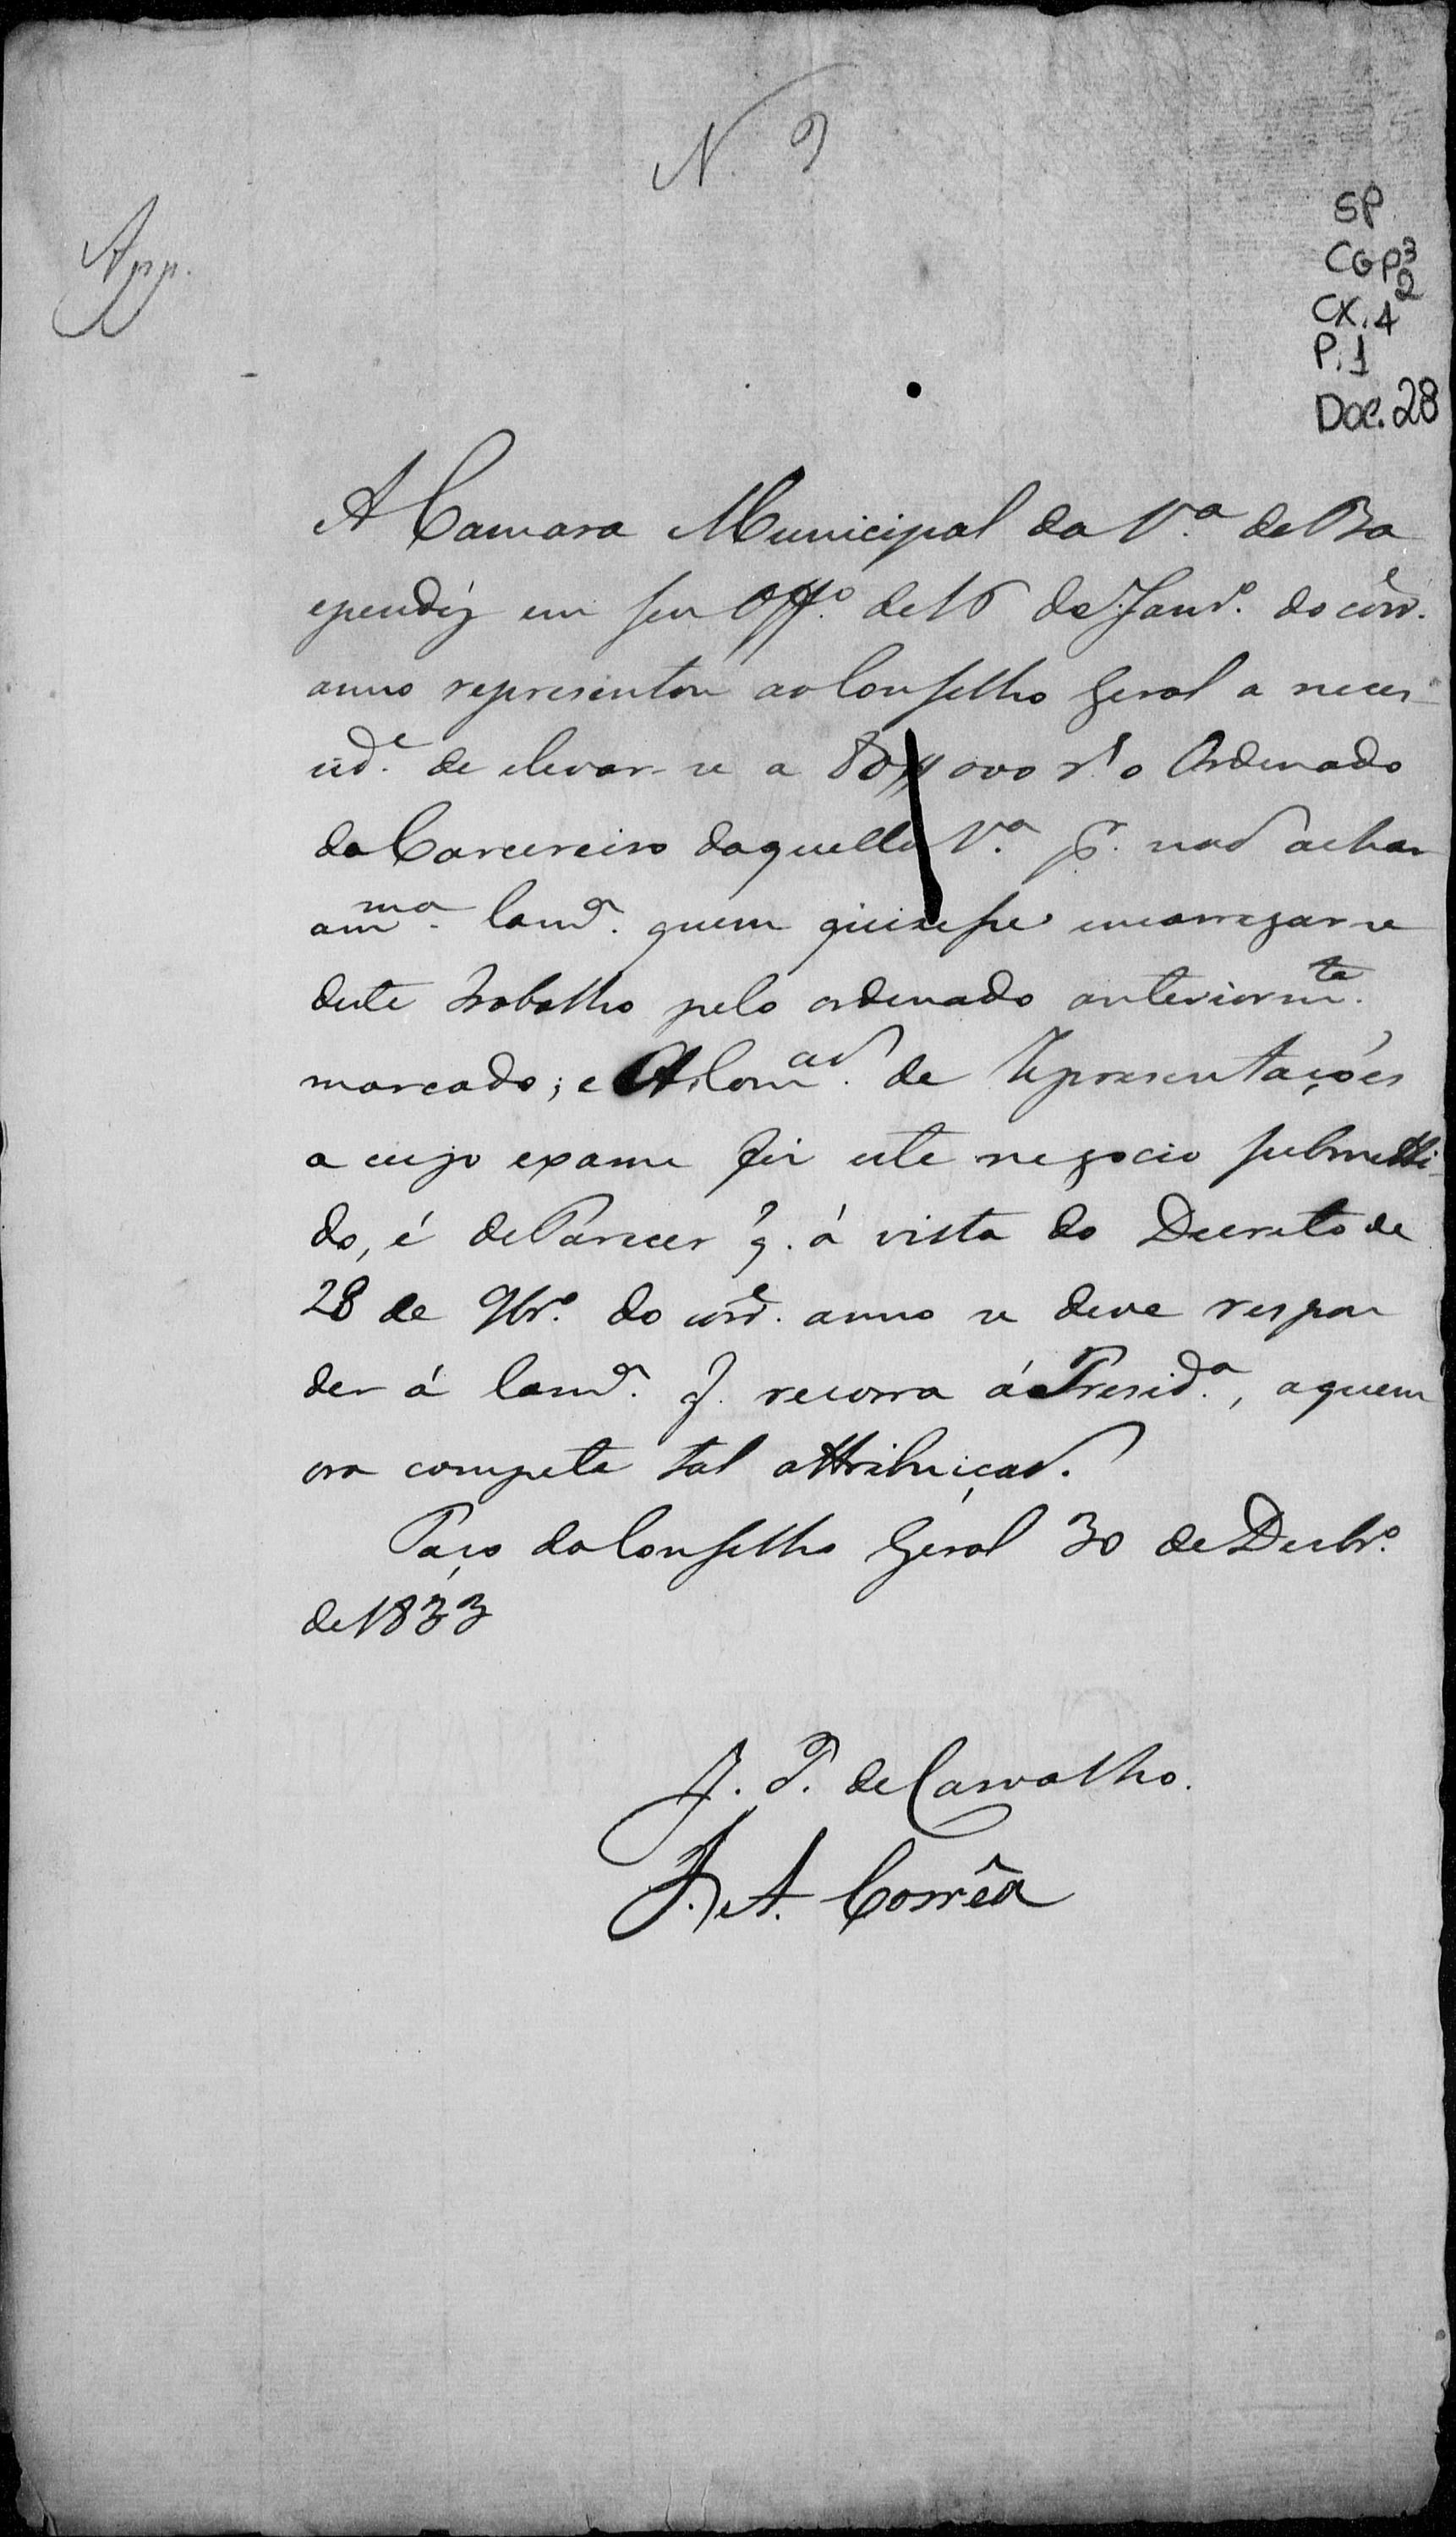 N. 9
App.
SP
CGP 3
2
CX. 4
P. 1
Doc. 28
A Camara Municipal da Vª de Ba
ependÿ em seu Offº de 16 de Janrº do corre.
anno representou ao Conselho Geral a neces-
side. de elevar-se a 80$000 rs o Ordenado
do Carcereiro daquella Vª pr. naõ achar
a mma. Camrª quem quizesse encarregar-se
deste trabalho pelo ordenado anteriormte.
marcado; e A Comaõ. de Representações
a cujo exame foi este negocio submetti-
do, é de Parecer q. á vista do Decreto de
28 de 9brº do corre. anno se deve respon
der á Camrª q. recorra á Presidª, a quem
ora compete tal attribuiçaõ.
Paço do Conselho Geral 30 de Dezbrº
de 1833
J. P. de Carvalho.
F. A. Corrêa